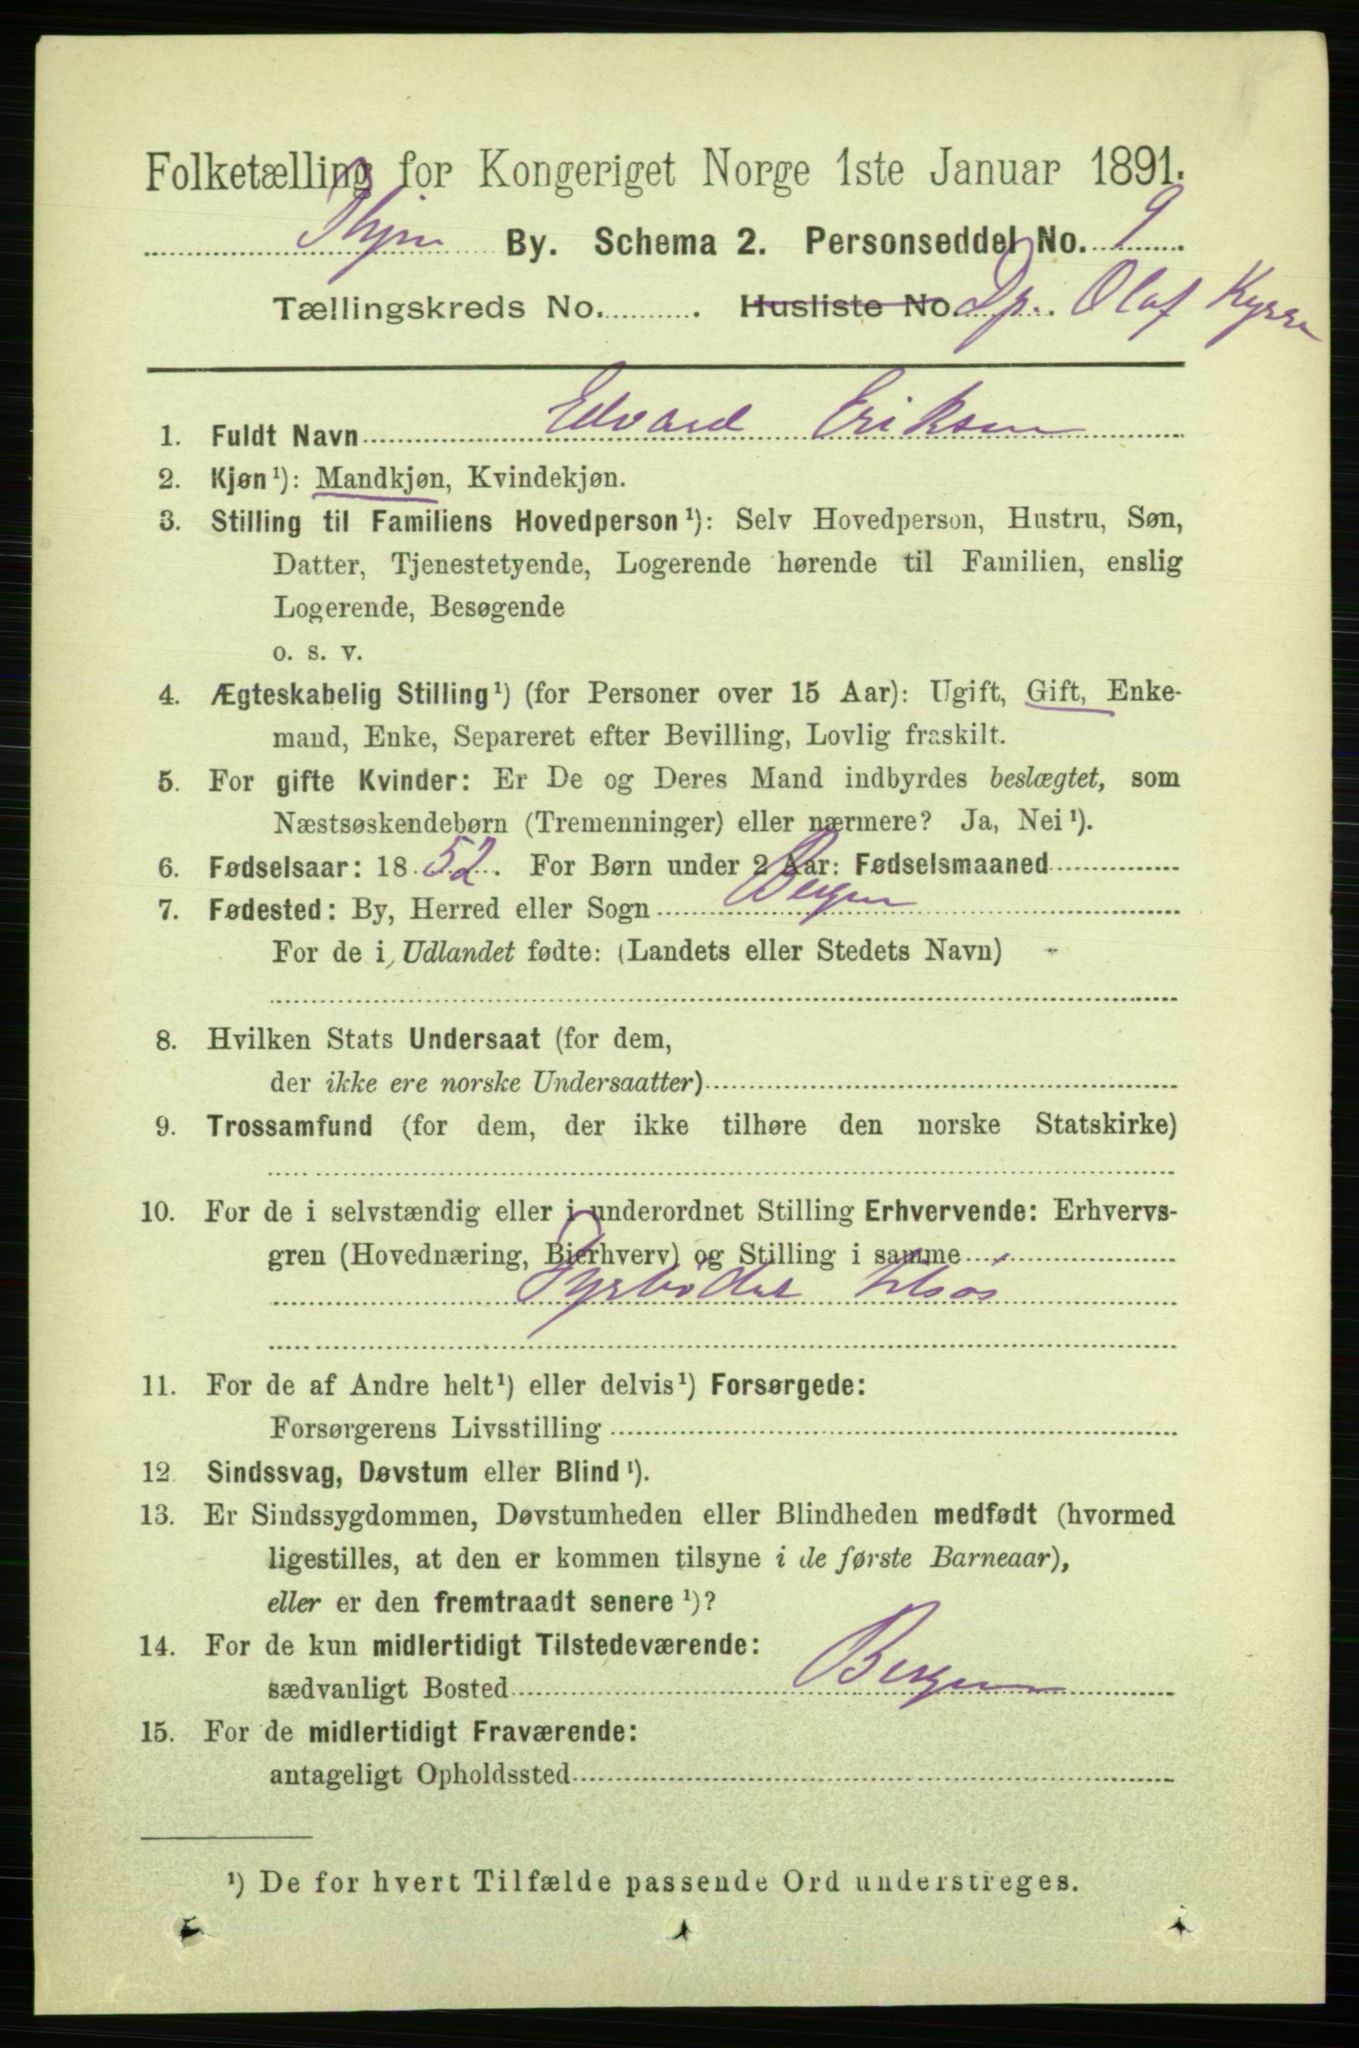 Folketælling for Kongeriget Norge 1ste Januar 1891.
Thjem By. Schema 2. Personseddel No. 9
Tællingskreds No. Husliste No Dp. Olaf Kyrre
1. Fuldt Navn Edvard Eriksen
2. Kjøn¹): Mandkjøn, Kvindekjøn.
3. Stilling til Familiens Hovedperson¹): Selv Hovedperson, Hustru, Søn,
Datter, Tjenestetyende, Logerende hørende til Familien, enslig
Logerende, Besøgende
o. s. v.
4. Ægteskabelig Stilling¹) (for Personer over 15 Aar): Ugift, Gift, Enke-
mand, Enke, Separeret efter Bevilling, Lovlig fraskilt.
5. For gifte Kvinder: Er De og Deres Mand indbyrdes beslægtet, som
Næstsøskendebørn (Tremenninger) eller nærmere? Ja, Nei¹).
6. Fødselsaar: 18 52. For Børn under 2 Aar: Fødselsmaaned
7. Fødested: By, Herred eller Sogn Bergen
For de i Udlandet fødte: (Landets eller Stedets Navn)
8. Hvilken Stats Undersaat (for dem,
der ikke ere norske Undersaatter)
9. Trossamfund (for dem, der ikke tilhøre den norske Statskirke)
10. For de i selvstændig eller i underordnet Stilling Erhvervende: Erhvervs-
gren (Hovednæring, Bierhverv) og Stilling i samme
Fyrbøder tilsøs
11. For de af Andre helt¹) eller delvis¹) Forsørgede:
Forsørgerens Livsstilling
12 Sindssvag, Døvstum eller Blind¹).
13. Er Sindssygdommen, Døvstumheden eller Blindheden medfødt (hvormed
ligestilles, at den er kommen tilsyne i de første Barneaar),
eller er den fremtraadt senere¹)?
14. For de kun midlertidigt Tilstedeværende:
sædvanligt Bosted Bergen
15. For de midlertidigt Fraværende:
antageligt Opholdssted
¹) De for hvert Tilfælde passende Ord understreges.